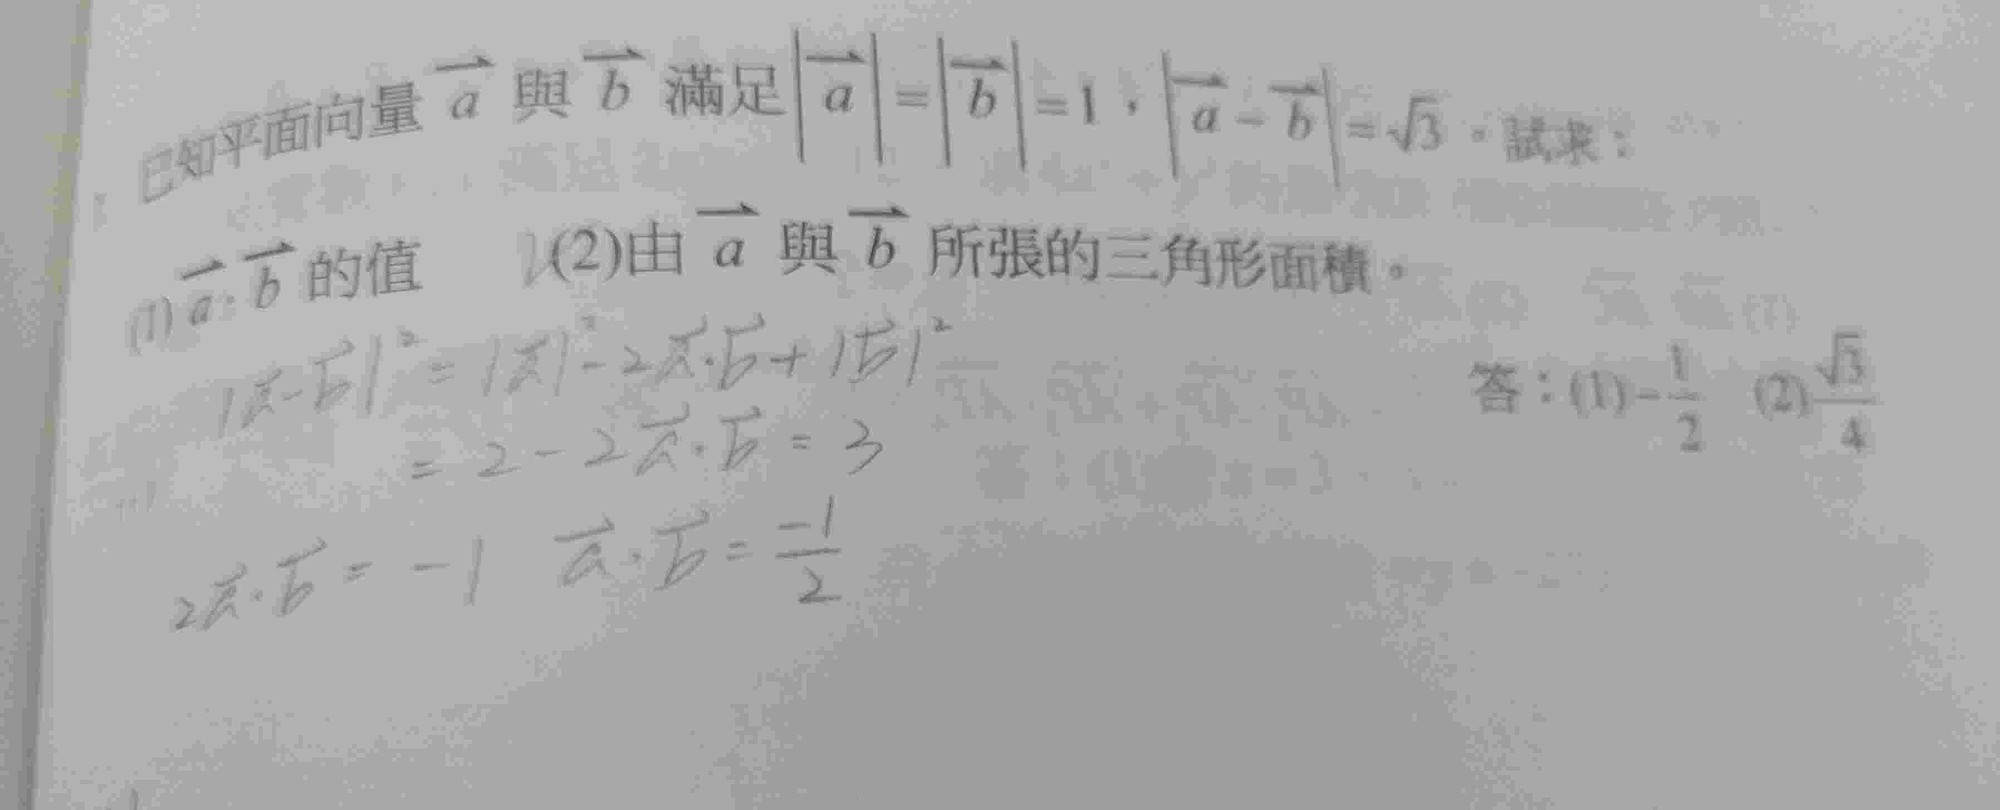 已知平面向量 $\overrightarrow{a}$ 與 $\overrightarrow{b}$ 滿足 $|\overrightarrow{a}|=|\overrightarrow{b}|=1$,$|\overrightarrow{a}-\overrightarrow{b}|=\sqrt{3}$。試求:
(1) $\overrightarrow{a}\cdot\overrightarrow{b}$ 的值 (2)由 $\overrightarrow{a}$ 與 $\overrightarrow{b}$ 所張的三角形面積。
$|\vec{a}-\vec{b}|^2=|\vec{a}|^2-2\vec{a}\cdot\vec{b}+|\vec{b}|^2$
答:(1)$-\frac{1}{2}$ (2)$\frac{\sqrt{3}}{4}$
$=2-2\vec{a}\cdot\vec{b}=3$
$2\vec{a}\cdot\vec{b}=-1$ $\vec{a}\cdot\vec{b}=\frac{-1}{2}$